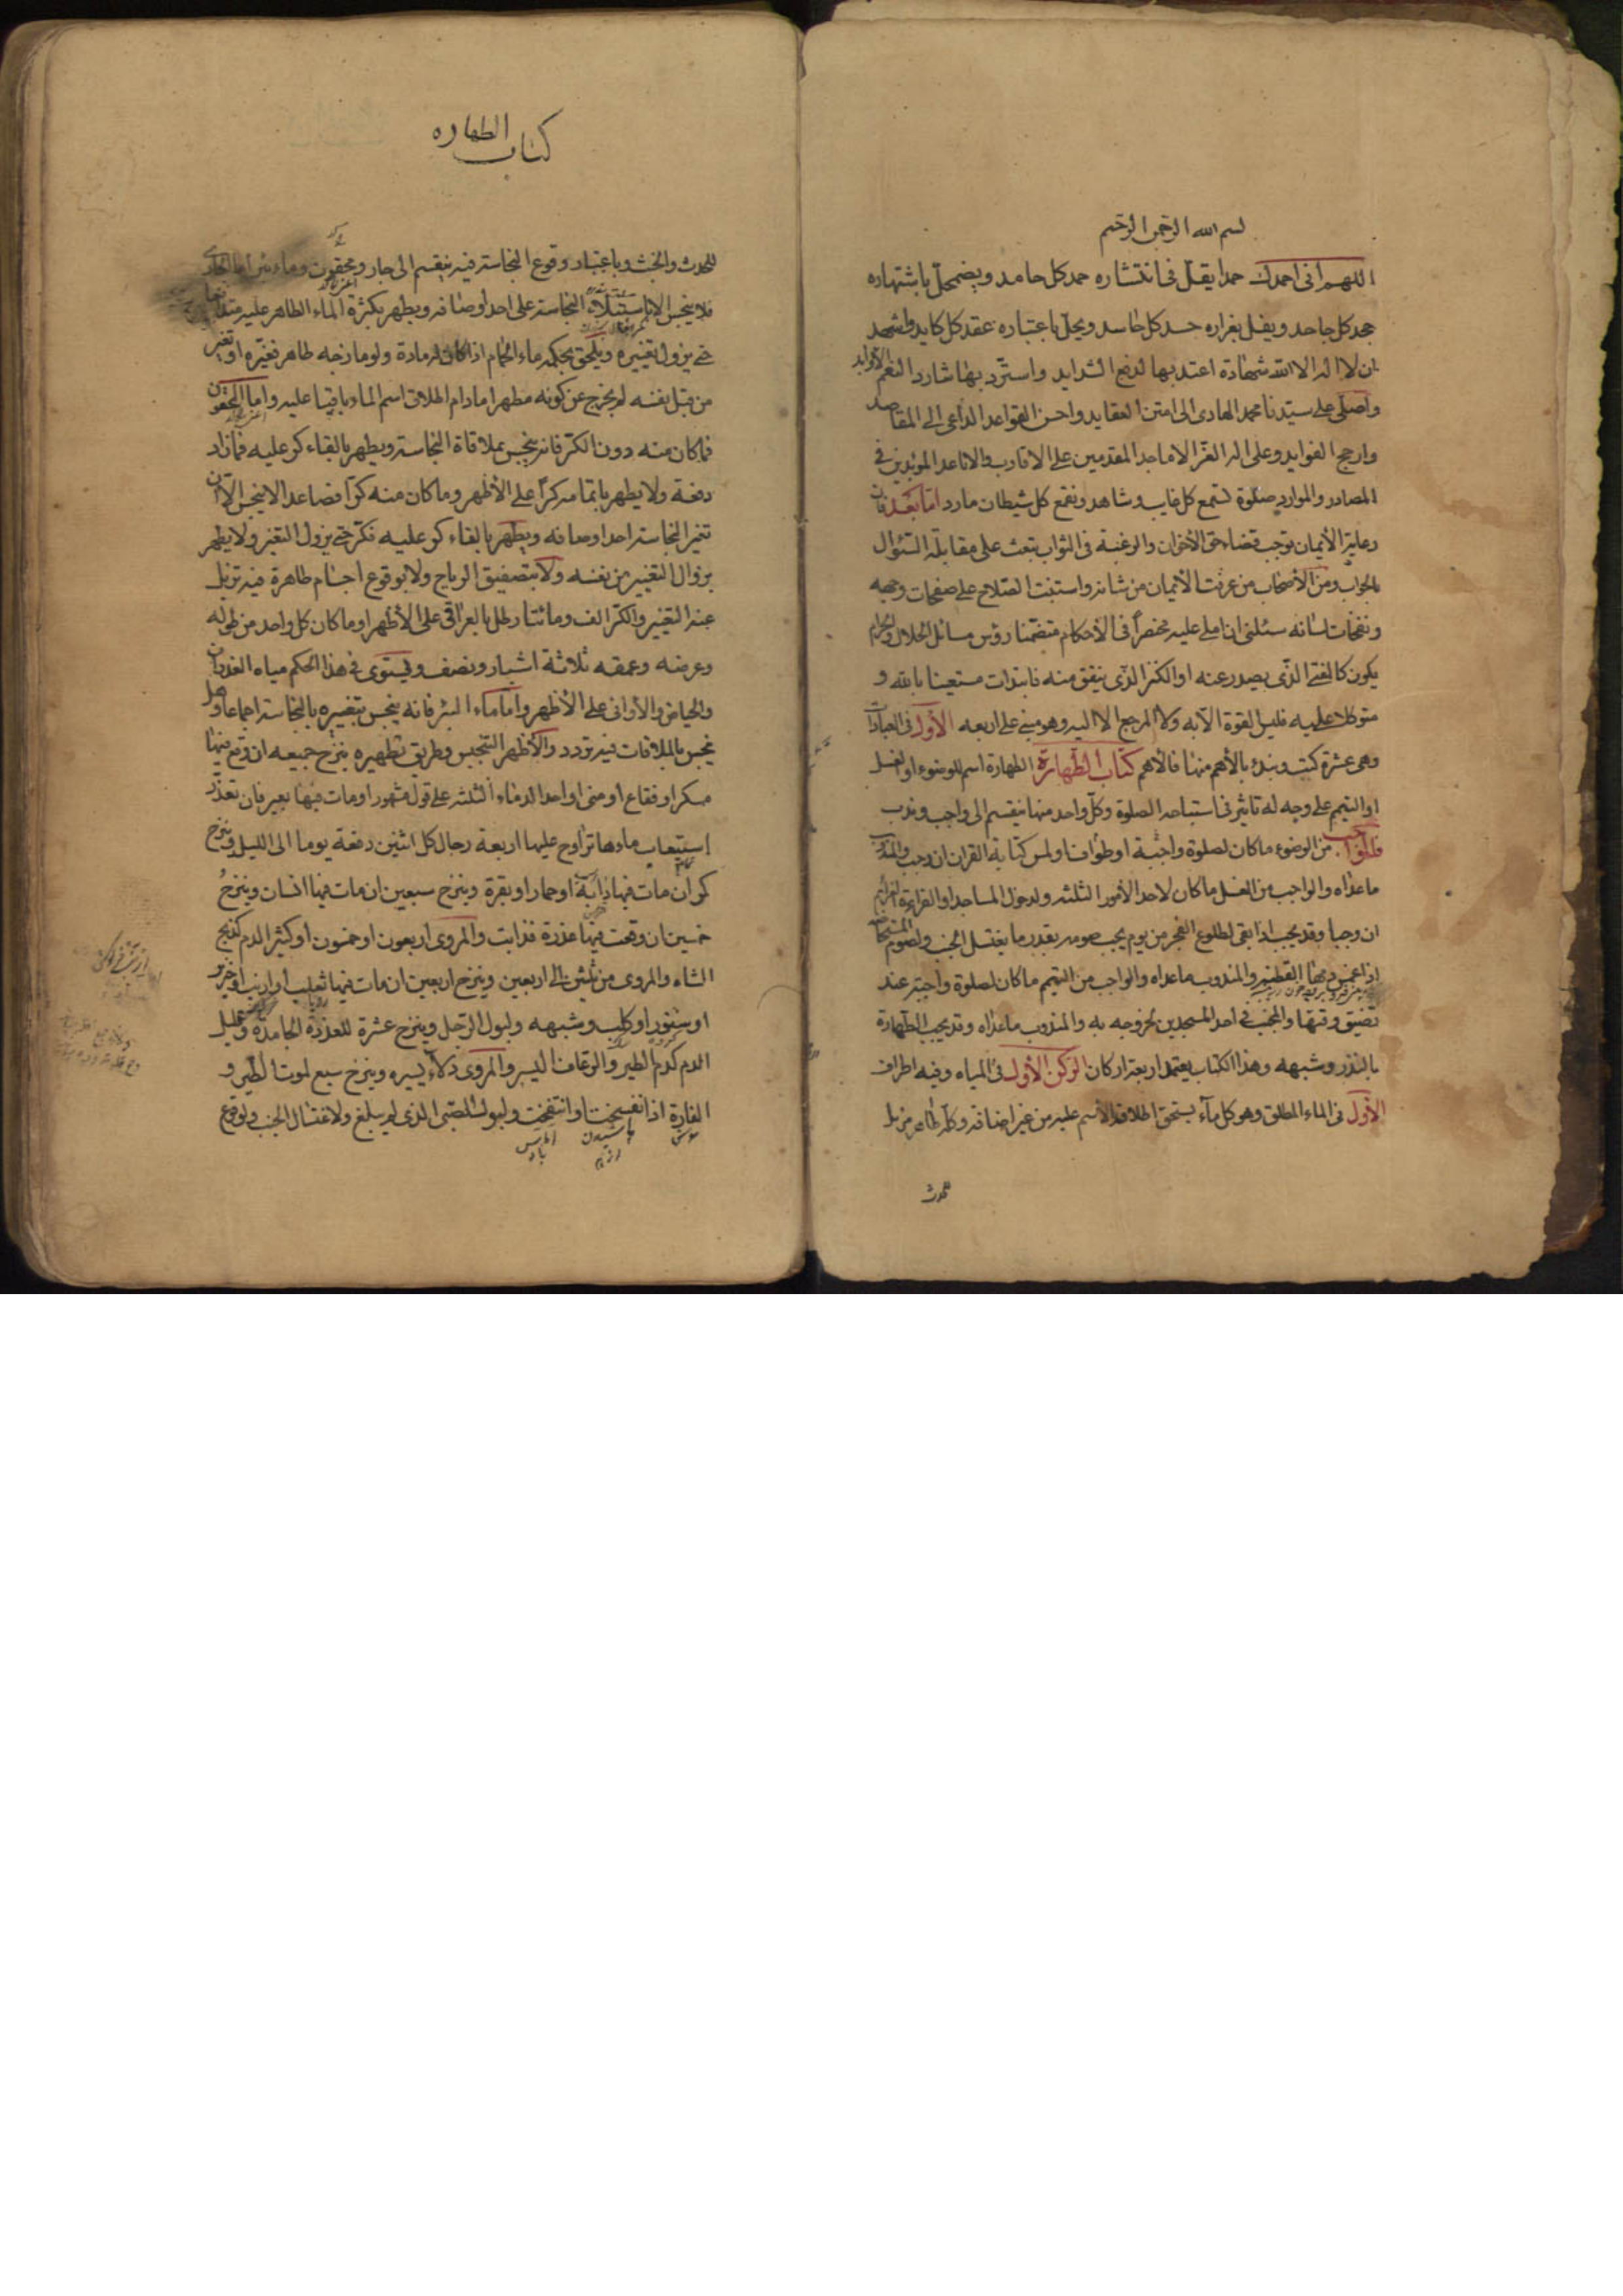 بسم الله الرحمن الرحيم
اللهم انى احمدك حمدا يقل فى انتشاره حمد كل حامد ويضمحل باشتهاره
جحد كل جاحد ويفل بغراره حسد كل حاسد ويحل باعتباره عقد كل كايد واشهد
ان لا اله الا الله شهادة اعتد بها لدفع الشدايد واسترد بها شارد النعم الاوابد
واصلى على سيدنا محمد الهادى الى امتن العقايد واحسن القواعد الداعى الى المقاصد
وارجح الفوايد وعلى اله الغر الاماجد المقدمين على الاقارب والاباعد المويدين فى
المصادر والموارد صلوة تسمع كل غايب وشاهد وتقمع كل شيطان مارد اما بعد فان
رعاية الأيمان توجب قضاء حق الأخوان والرغبة فى الثواب تبعث على مقابلة السئوال
بالجواب ومن الأصحاب من عرفت الأيمان من شانه واستبنت الصلاح على صفحات وجهه
ونفحات لسانه سئلنى ان املى عليه مختصراً فى الأحكام متضمنا رؤس مسائل الحلال والحرام
يكون كالمفتى الذى يصدر عنه او الكنز الذى ينفق منه فابتدات مستعينا بالله و
متوكلا عليه فليس القوة الا به ولا المرجع الا اليه وهو مبنى على اربعه الأول فى العبادات
وهى عشرة كتب ونبدء بالأهم منها فالأهم كتاب الطهارة الطهارة اسم للوضوء او الغسل
او التيمم على وجه له تاثير فى استباحة الصلوة وكل واحد منها ينقسم الى واجب وندب
فالواجب من الوضوء ما كان لصلوة واجبة او طواف او لمس كتابة القران ان وجب والمندوب
ما عداه والواجب من الغسل ما كان لاحد الأمور الثلثه ولدخول المساجد او القراءة العزايم
ان وجبا وقد يجب اذا بقى لطلوع الفجر من يوم يجب صومه بقدر ما يغتسل الجنب ولصوم المستحاضه
اذا غمس دمها القطنه والمندوب ماعداه والواجب من التيمم ما كان لصلوة واجبة عند
تضيق وقتها والمجنب فى احد المسجدين ليخرج به والمندوب ماعداه وقد يجب الطهارة
بالنذر وشبهه وهذا الكتاب يعتمد اربعة اركان الركن الأول فى المياه وفيه اطراف
الأول فى الماء المطلق وهو كل مآء يستحق اطلاق الاسم عليه من غير اضافة وكله طاهر مزيل
للحدث
كتاب الطهاره
للحدث والخبث وباعتبار وقوع النجاسة فيه ينقسم الى جار ومحقون وماء بئر اما الجارى
فلا ينجس الا باستيلاء النجاسة على احد أوصافه ويطهر بكثرة الماء الطاهر عليه متدافعا
حتى يزول تغييره ويلحق بحكمه ماء الحمام اذا كان له مادة ولو مازجه طاهر فغيره او تغير
من قبل نفسه لم يخرج عن كونه مطهرا مادام اطلاق اسم الماء باقيا عليه واما المحقون
فما كان منه دون الكر فانه ينجس بملاقاة النجاسة ويطهر بالقاء كر عليه فمازاد
دفعة ولا يطهر باتمامه كراً على الأظهر وما كان منه كرّا فصاعدا لا ينجس الا ان
تغير النجاسة احد اوصافه ويطهر بالقاء كر عليه فكر حتى يزول التغير ولا يطهر
بزوال التغيير من نفسه ولا بتصفيق الرياح ولا بوقوع اجسام طاهرة فيه تزيل
عنه التغيير والكر الف ومائتا رطل بالعراقى على الأظهر او ما كان كل واحد من طوله
وعرضه وعمقه ثلاثة اشبار ونصف ويستوى فى هذا الحكم مياه الغدران
والحياض والأوانى على الأظهر واما ماء البئر فانه ينجس بتغييره بالنجاسة اجماعا وهل
ينجس بالملاقات فيه تردد والأظهر التنجيس وطريق تطهيره ينزح جميعه ان وقع فيها
مسكر او فقاع او منى او احد الدماء الثلثه على قول مشهور او مات فيها بعير فان تعذر
استيعاب ماءها تراوح عليها اربعة رجال كل اثنين دفعة يوما الى الليل وينزح
كر ان مات فيها دابة او حمار او بقرة وينزح سبعين ان مات فيها انسان وينزح
خمسين ان وقعت فيها عذرة فذابت والمروى اربعون او خمسون او كثير الدم كذبح
الشاه والمروى من ثلثين الى اربعين وينزح اربعين ان مات فيها ثعلب أو ارنب او خنزير
او سنور او كلب وشبهه ولبول الرجل وينزح عشرة للعذرة الجامدة وقليل
الدم كدم الطير والرعاف اليسير والمروى دلاء يسيره وينزح سبع لموت الطير و
الفارة اذا تفسخت او انتفخت ولبول الصبى الذى لم يبلغ ولاغتسال الجنب ولوقوع